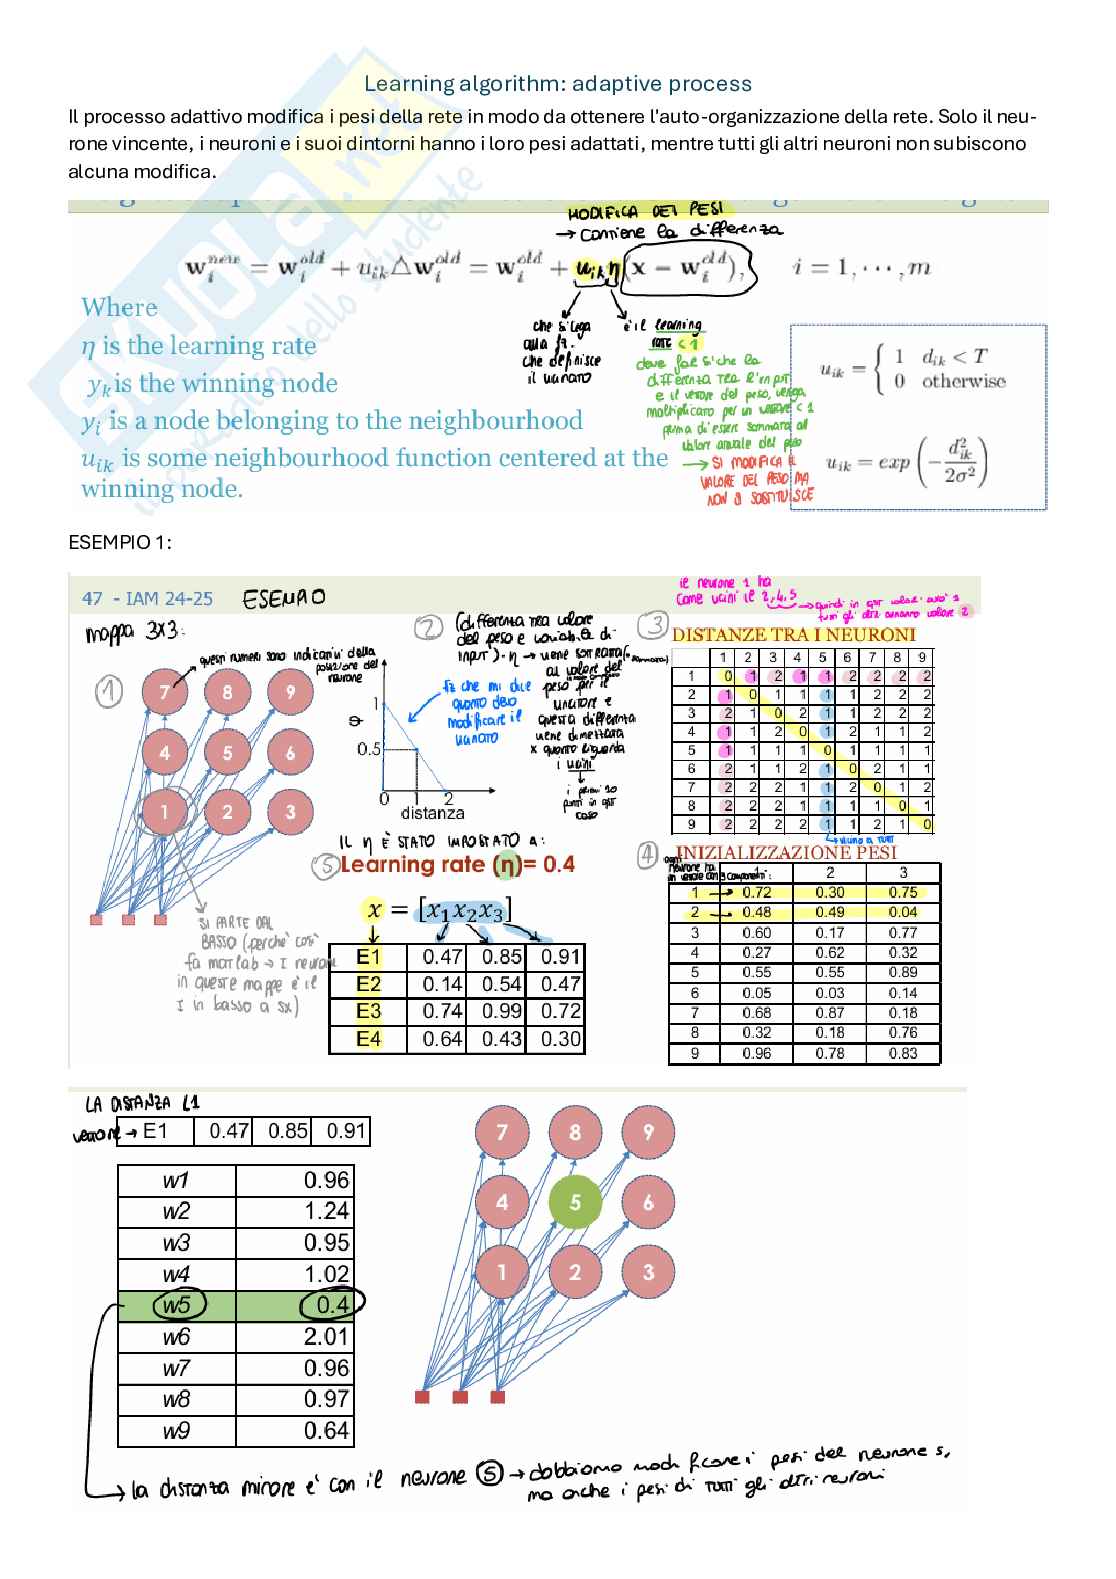 Learning algorithm: adaptive process
Il processo adattivo modifica i pesi della rete in modo da ottenere l'auto-organizzazione della rete. Solo il neu-
rone vincente, i neuroni e i suoi dintorni hanno i loro pesi adattati, mentre tutti gli altri neuroni non subiscono
alcuna modifica.
MODIFICA DEI PESI
→ contiene la differenza
w_i^new = w_i^old + u_ik △w_i^old = w_i^old + u_ik η(x − w_i^old), i = 1, ··· , m
Where
η is the learning rate
y_k is the winning node
y_i is a node belonging to the neighbourhood
u_ik is some neighbourhood function centered at the
winning node.
che si lega
alla fz.
che definisce
il vicinato
è il learning
rate < 1
deve far sì che la
differenza tra l'input
e il vettore del peso, venga
moltiplicato per un valore < 1
prima di essere sommata al
valore attuale del peso
→ SI MODIFICA IL
VALORE DEL PESO MA
NON SI SOSTITUISCE
u_ik = { 1 d_ik < T
0 otherwise
u_ik = exp(−d_ik^2 / 2σ^2)
ESEMPIO 1:
47 - IAM 24-25 ESEMPIO
mappa 3x3:
questi numeri sono indicativi della
posizione del
neurone
1
7 8 9
4 5 6
1 2 3
SI PARTE DAL
BASSO (perché così
fa matlab → I neurone
in queste mappe è il
I in basso a sx)
2
(differenza tra valore
del peso e variabile di
input) · η → viene sottratta
al valore del
peso per il
vincitore e
questa differenza
viene dimezzata
x quanto riguarda
i vicini
i primi 20
punti in qst
caso
fz che mi dice
quanto devo
modificare il
vicinato
1
0.5
0 1 2
distanza
il neurone 1 ha
come vicini il 2, 4, 5
→ quindi in qst valore avrò 1
tutti gli altri avranno valore 2
3
DISTANZE TRA I NEURONI
1 2 3 4 5 6 7 8 9
1 0 1 2 1 1 2 2 2 2
2 1 0 1 1 1 1 2 2 2
3 2 1 0 2 1 1 2 2 2
4 1 1 2 0 1 2 1 1 2
5 1 1 1 1 0 1 1 1 1
6 2 1 1 2 1 0 2 1 1
7 2 2 2 1 1 2 0 1 2
8 2 2 2 1 1 1 1 0 1
9 2 2 2 2 1 1 2 1 0
→ vicino a tutti
IL η È STATO IMPOSTATO A:
5
Learning rate (η)= 0.4
x = [x1x2x3]
E1 0.47 0.85 0.91
E2 0.14 0.54 0.47
E3 0.74 0.99 0.72
E4 0.64 0.43 0.30
4
INIZIALIZZAZIONE PESI
ogni
neurone ha
un vettore con 3 componenti:
1 2 3
1 → 0.72 0.30 0.75
2 → 0.48 0.49 0.04
3 0.60 0.17 0.77
4 0.27 0.62 0.32
5 0.55 0.55 0.89
6 0.05 0.03 0.14
7 0.68 0.87 0.18
8 0.32 0.18 0.76
9 0.96 0.78 0.83
LA DISTANZA L1
vettore → E1 0.47 0.85 0.91
w1 0.96
w2 1.24
w3 0.95
w4 1.02
w5 0.4
w6 2.01
w7 0.96
w8 0.97
w9 0.64
7 8 9
4 5 6
1 2 3
→ la distanza minore è con il neurone 5 → dobbiamo modificare i pesi del neurone 5,
ma anche i pesi di tutti gli altri neuroni